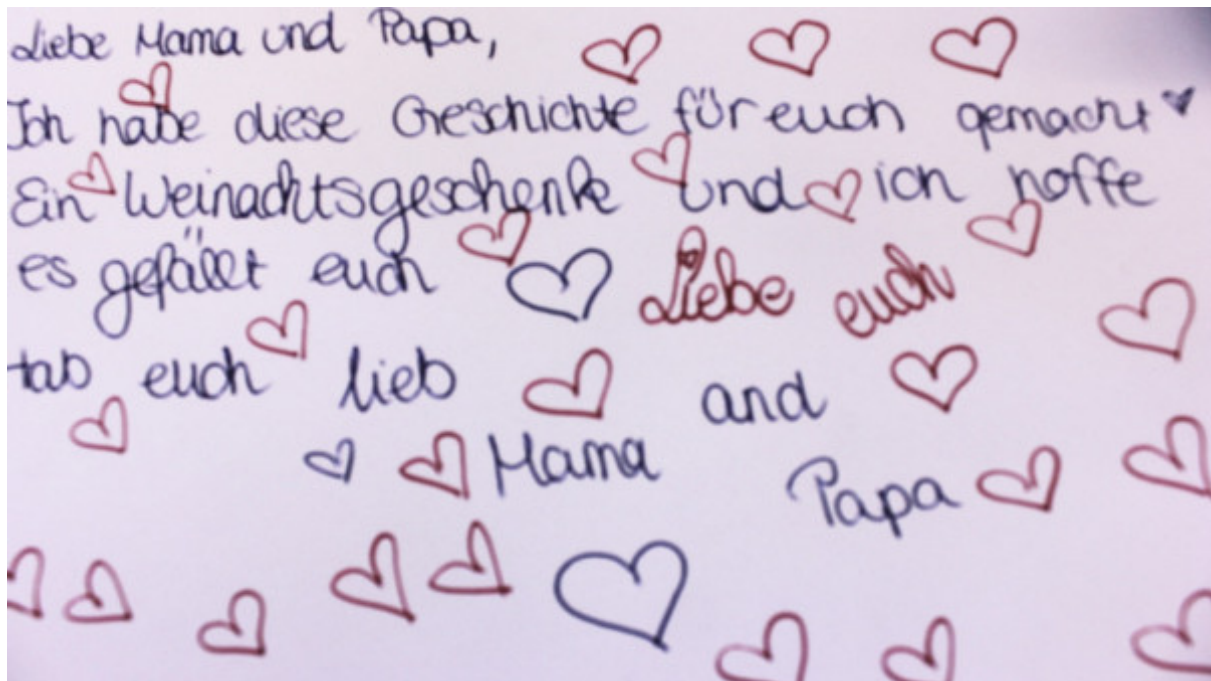 Liebe Mama und Papa,
Ich habe diese Geschichte für euch gemacht
Ein Weinachtsgeschenk und ich hoffe
es gefällt euch Liebe euch
hab euch lieb and
Mama Papa